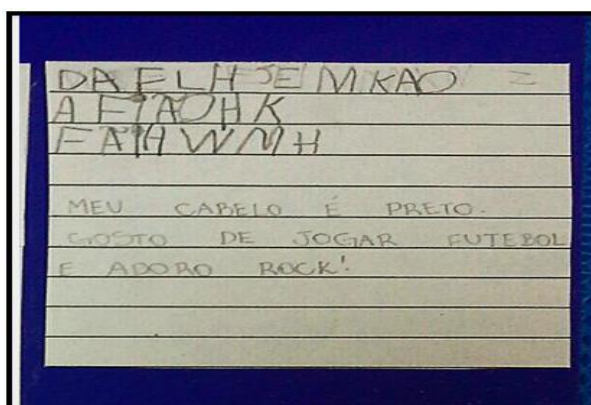 DAFLHJEMKAO
AFTAOHK
FATHWMH
MEU CABELO É PRETO.
GOSTO DE JOGAR FUTEBOL
E ADORO ROCK!